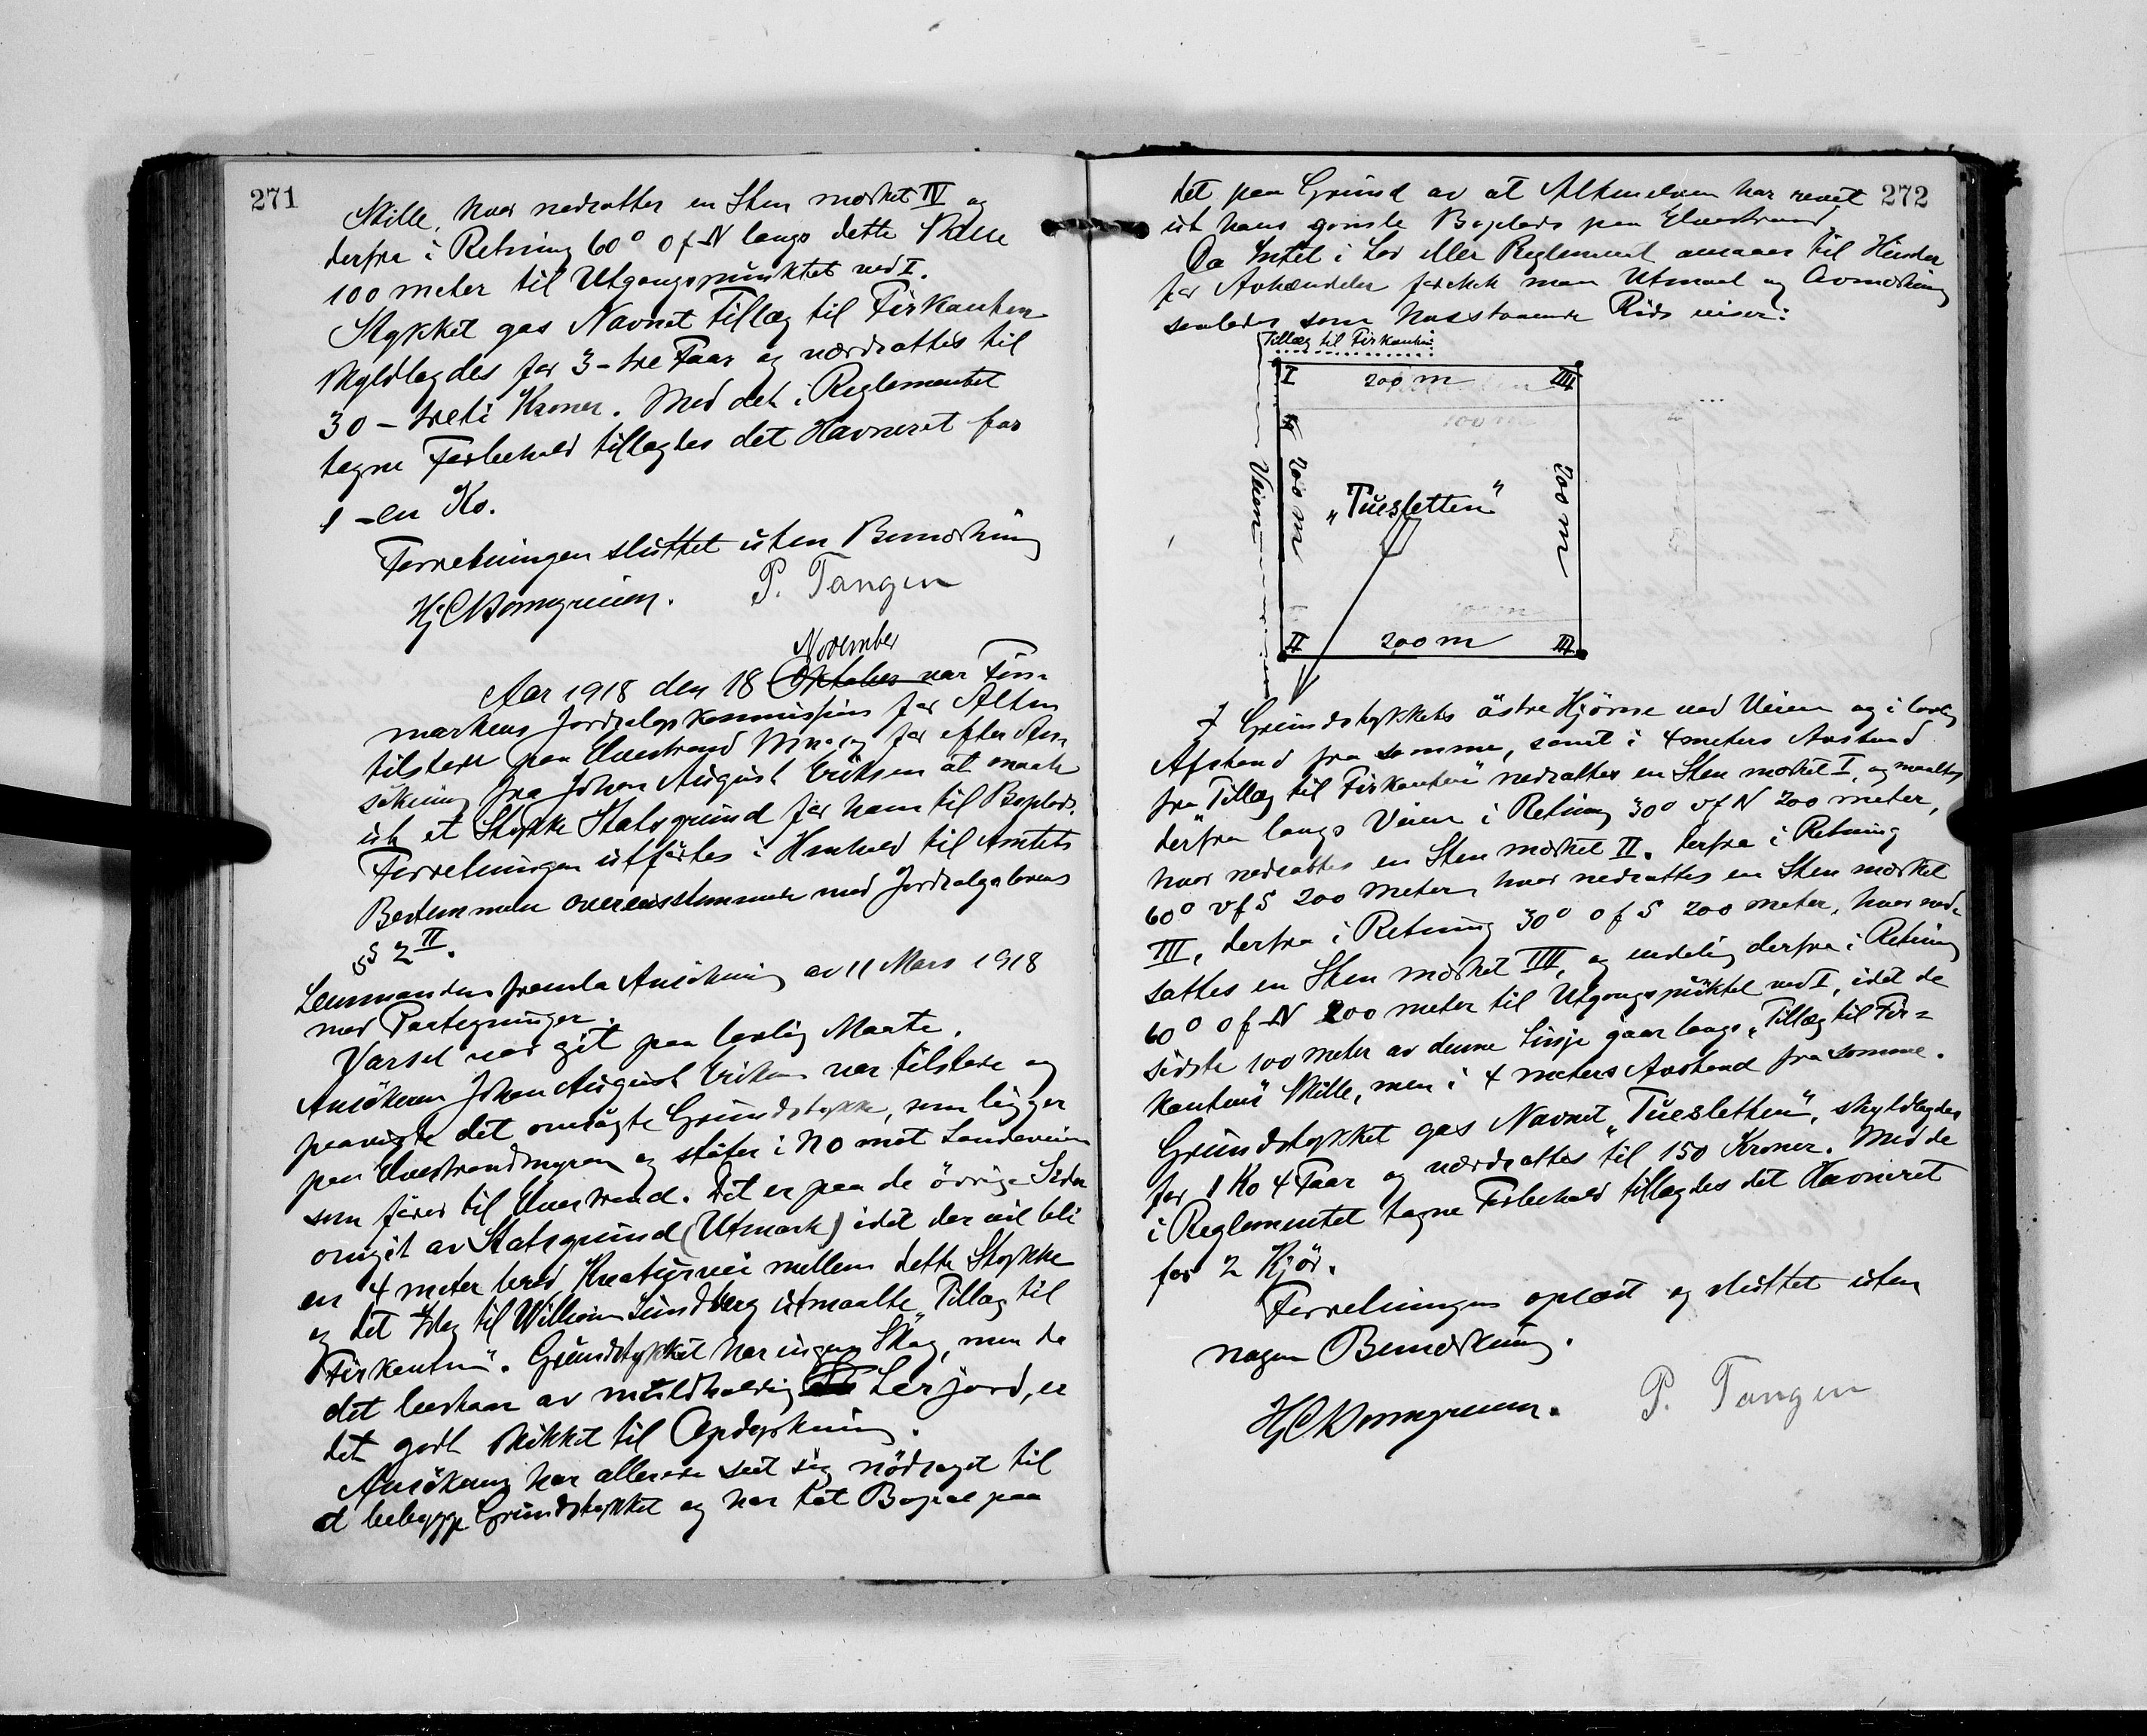 271
Skille, hvor nedsattes en Sten merket IV og
derfra i Retning 60° O f N langs dette Skille
100 meter til Utgangspunktet ved I.
Stykket gas Navnet Tillæg til Firkanten
skyldlagdes for 3 - tre Faar og værdsattes til
30 - treti Kroner. Med det i Reglementet
tagne Forbehold tillagdes det Havneret for
1 - en Ko.
Forretningen sluttet uten Bemerkning
P. Tangen
November
Aar 1918 den 18 Oktober var Fin-
markens Jordsalgskommission for Alten
tilstede paa Elvestrand for efter An-
søkning fra Johan August Eriksen at maale
ut et Stykke Statsgrund for ham til Boplads.
Forretningen utførtes i Henhold til Amtets
Bestemmelse overensstemmende med Jordsalgslovens
§ 2 II.
Lensmanden fremla Ansökning av 11 Mars 1918
med Paategninger.
Varsel var git paa lovlig Maate.
Ansökeren Johan August Eriksen var tilstede og
paaviste det omsögte Grundstykke, som ligger
paa Elvestrandmyren og støter i NO mot Landeveien
som fører til Elvestrand. Det er paa de övrige Sider
omgit av Statsgrund (Utmark) idet der vil bli
en 4 meter bred Kreaturvei mellem dette Stykke
og det idag til William Lundberg utmaalte „Tillæg til
Firkanten“. Grundstykket har ingen Skog, men da
det bestaar av muldholdig Lerjord, er
det godt skikket til Opdyrkning.
Ansökeren har allerede seet sig nödsaget til
at bebygge Grundstykket og har tat Bopæl paa
272
det paa Grund av at Altenelven har revet
ut hans gamle Boplads paa Elvestrand.
Da Intet i Lov eller Reglement ansaaes til Hinder
for Avhændelse foretok man Utmaal og Avmerkning
saaledes som hosstaaende Rids viser:
Tillæg til Firkanten
I 200 m IIII
200 m
Veien
200 m
„Tuesletten“
II 200 m III
I Grundstykkets östre Hjörne ved Veien og i lovlig
Afstand fra samme, samt i 4 meters Avstand
fra „Tillæg til Firkanten“ nedsattes en Sten merket I, og maaltes
derfra langs Veien i Retning 30° V f N 200 meter,
hvor nedsattes en Sten merket II. Derfra i Retning
60° V f S 200 meter, hvor nedsattes en Sten merket
III, derfra i Retning 30° O f S 200 meter, hvor ned-
sattes en Sten merket IIII, og endelig derfra i Retning
60° O f N 200 meter til Utgangspuktet ved I, idet de
sidste 100 meter av denne Linje gaar langs „Tillæg til Fir=
kanten“s Skille, men i 4 meters Avstand fra samme.
Grundstykket gas Navnet „Tuesletten“, skyldlagdes
for 1 Ko 4 Faar og værdsattes til 150 Kroner. Med de
i Reglementet tagne Forbehold tillagdes det Havneret
for 2 Kjör.
Forretningen oplæst og sluttet uten
nogen Bemerkning.
P. Tangen